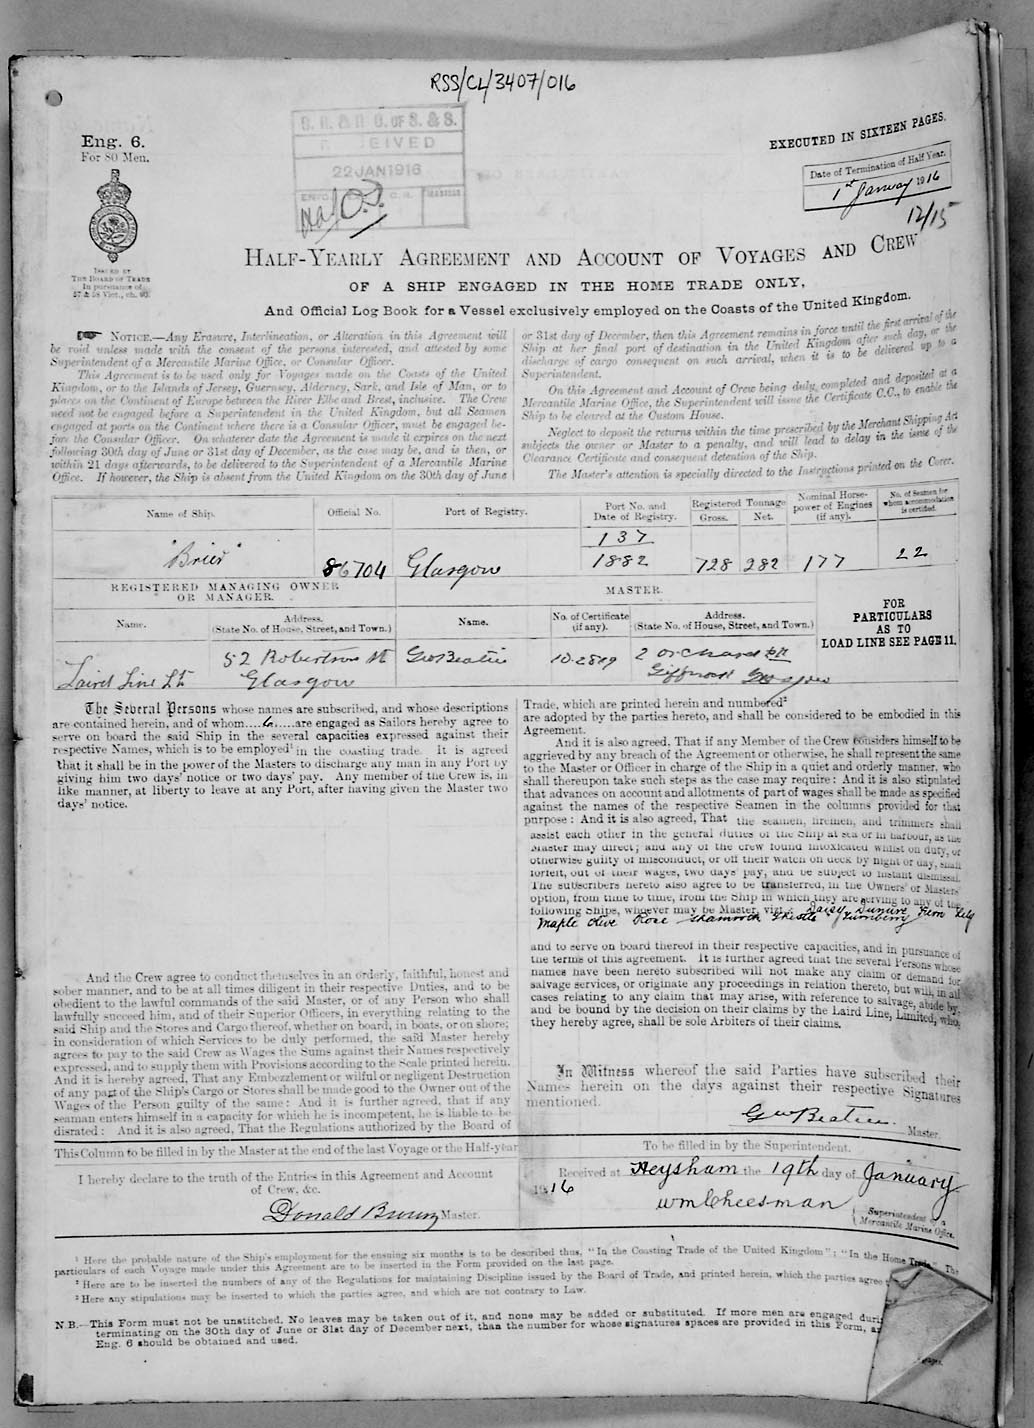 RSS/CL/3407/016
Eng. 6.
For 80 Men.
ISSUED BY
THE BOARD OF TRADE
In pursuance of
57 & 58 Vict., ch. 60.
22 JAN 1916
EXECUTED IN SIXTEEN PAGES.
Date of Termination of Half Year.
1st January 1916
12/15
HALF-YEARLY AGREEMENT AND ACCOUNT OF VOYAGES AND CREW
OF A SHIP ENGAGED IN THE HOME TRADE ONLY,
And Official Log Book for a Vessel exclusively employed on the Coasts of the United Kingdom.
NOTICE.—Any Erasure, Interlineation, or Alteration in this Agreement will
be void unless made with the consent of the persons interested, and attested by some
Superintendent of a Mercantile Marine Office, or Consular Officer.
This Agreement is to be used only for Voyages made on the Coasts of the United
Kingdom, or to the Islands of Jersey, Guernsey, Alderney, Sark, and Isle of Man, or to
places on the Continent of Europe between the River Elbe and Brest, inclusive. The Crew
need not be engaged before a Superintendent in the United Kingdom, but all Seamen
engaged at ports on the Continent where there is a Consular Officer, must be engaged be-
fore the Consular Officer. On whatever date the Agreement is made it expires on the next
following 30th day of June or 31st day of December, as the case may be, and is then, or
within 21 days afterwards, to be delivered to the Superintendent of a Mercantile Marine
Office. If however, the Ship is absent from the United Kingdom on the 30th day of June
or 31st day of December, then this Agreement remains in force until the first arrival of the
Ship at her final port of destination in the United Kingdom after such day, or the
discharge of cargo consequent on such arrival, when it is to be delivered up to a
Superintendent.
On this Agreement and Account of Crew being duly completed and deposited at a
Mercantile Marine Office, the Superintendent will issue the Certificate C.C., to enable the
Ship to be cleared at the Custom House.
Neglect to deposit the returns within the time prescribed by the Merchant Shipping Act
subjects the owner or Master to a penalty, and will lead to delay in the issue of the
Clearance Certificate and consequent detention of the Ship.
The Master's attention is specially directed to the Instructions printed on the Cover.
Name of Ship. Official No. Port of Registry. Port No. and Date of Registry. Registered Tonnage Gross. Net. Nominal Horse-power of Engines (if any). No. of Seamen for whom accommodation is certified.
"Brier" 86704 Glasgow 137 1882 728 282 177 22
REGISTERED MANAGING OWNER OR MANAGER. MASTER.
Name. Address. (State No. of House, Street, and Town.) Name. No. of Certificate (if any). Address. (State No. of House, Street, and Town.)
FOR PARTICULARS AS TO LOAD LINE SEE PAGE 11.
Laird Line Ltd 52 Robertson St Glasgow Geo Beattie 2 Orchard Giffnock Glasgow
The Several Persons whose names are subscribed, and whose descriptions
are contained herein, and of whom....6....are engaged as Sailors hereby agree to
serve on board the said Ship in the several capacities expressed against their
respective Names, which is to be employed¹ in the coasting trade. It is agreed
that it shall be in the power of the Masters to discharge any man in any Port by
giving him two days' notice or two days' pay. Any member of the Crew is, in
like manner, at liberty to leave at any Port, after having given the Master two
days' notice.
And the Crew agree to conduct themselves in an orderly, faithful, honest and
sober manner, and to be at all times diligent in their respective Duties, and to be
obedient to the lawful commands of the said Master, or of any Person who shall
lawfully succeed him, and of their Superior Officers, in everything relating to the
said Ship and the Stores and Cargo thereof, whether on board, in boats, or on shore;
in consideration of which Services to be duly performed, the said Master hereby
agrees to pay to the said Crew as Wages the Sums against their Names respectively
expressed, and to supply them with Provisions according to the Scale printed herein.
And it is hereby agreed, That any Embezzlement or wilful or negligent Destruction
of any part of the Ship's Cargo or Stores shall be made good to the Owner out of the
Wages of the Person guilty of the same: And it is further agreed, that if any
seaman enters himself in a capacity for which he is incompetent, he is liable to be
disrated: And it is also agreed, That the Regulations authorized by the Board of
Trade, which are printed herein and numbered²
are adopted by the parties hereto, and shall be considered to be embodied in this
Agreement.
And it is also agreed, That if any Member of the Crew considers himself to be
aggrieved by any breach of the Agreement or otherwise, he shall represent the same
to the Master or Officer in charge of the Ship in a quiet and orderly manner, who
shall thereupon take such steps as the case may require: And it is also stipulated
that advances on account and allotments of part of wages shall be made as specified
against the names of the respective Seamen in the columns provided for that
purpose: And it is also agreed, That the seamen, firemen, and trimmers shall
assist each other in the general duties of the Ship at sea or in harbour, as the
Master may direct; and any of the crew found intoxicated whilst on duty, or
otherwise guilty of misconduct, or off their watch on deck by night or day, shall
forfeit, out of their wages, two days' pay, and be subject to instant dismissal.
The subscribers hereto also agree to be transferred, in the Owners' or Masters'
option, from time to time, from the Ship in which they are serving to any of the
following Ships, whoever may be Master, viz.: Daisy Dunure Fern Lily
Maple Olive Rose Shamrock Thistle Turnberry
and to serve on board thereof in their respective capacities, and in pursuance of
the terms of this agreement. It is further agreed that the several Persons whose
names have been hereto subscribed will not make any claim or demand for
salvage services, or originate any proceedings in relation thereto, but will, in all
cases relating to any claim that may arise, with reference to salvage, abide by,
and be bound by the decision on their claims by the Laird Line, Limited, who,
they hereby agree, shall be sole Arbiters of their claims.
In Witness whereof the said Parties have subscribed their
Names herein on the days against their respective Signatures
mentioned.
Geo Beattie Master.
This Column to be filled in by the Master at the end of the last Voyage or the Half-year
I hereby declare to the truth of the Entries in this Agreement and Account
of Crew, &c.
Donald Brown Master.
To be filled in by the Superintendent.
Received at Heysham the 19th day of January
1916
Wm Cheesman
Superintendent of a Mercantile Marine Office.
¹ Here the probable nature of the Ship's employment for the ensuing six months is to be described thus, "In the Coasting Trade of the United Kingdom"; "In the Home Trade." The
particulars of each Voyage made under this Agreement are to be inserted in the Form provided on the last page.
² Here are to be inserted the numbers of any of the Regulations for maintaining Discipline issued by the Board of Trade, and printed herein, which the parties agree
³ Here any stipulations may be inserted to which the parties agree, and which are not contrary to Law.
N.B.—This Form must not be unstitched. No leaves may be taken out of it, and none may be added or substituted. If more men are engaged
terminating on the 30th day of June or 31st day of December next, than the number for whose signatures spaces are provided in this Form,
Eng. 6 should be obtained and used.